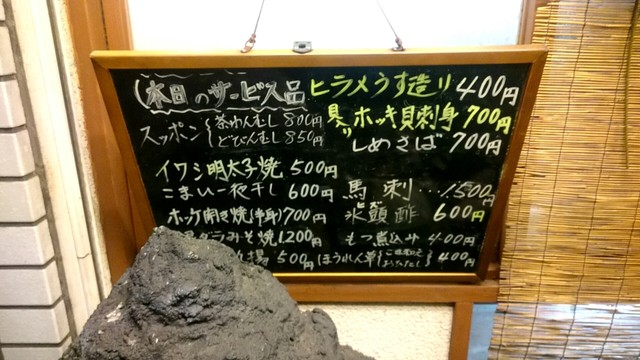 本日のサービス品
スッポン 茶わんむし 800円
どびんむし 850円
イワシ明太子焼 500円
こまい一夜干し 600円
ホッケ開き焼(半身) 700円
ダラみそ焼 1,200円
揚 500円
ヒラメうす造り 400円
ホッキ貝刺身 700円
しめさば 700円
馬刺…1500円
氷頭酢 600円
もつ煮込み 400円
ほうれん草 400円